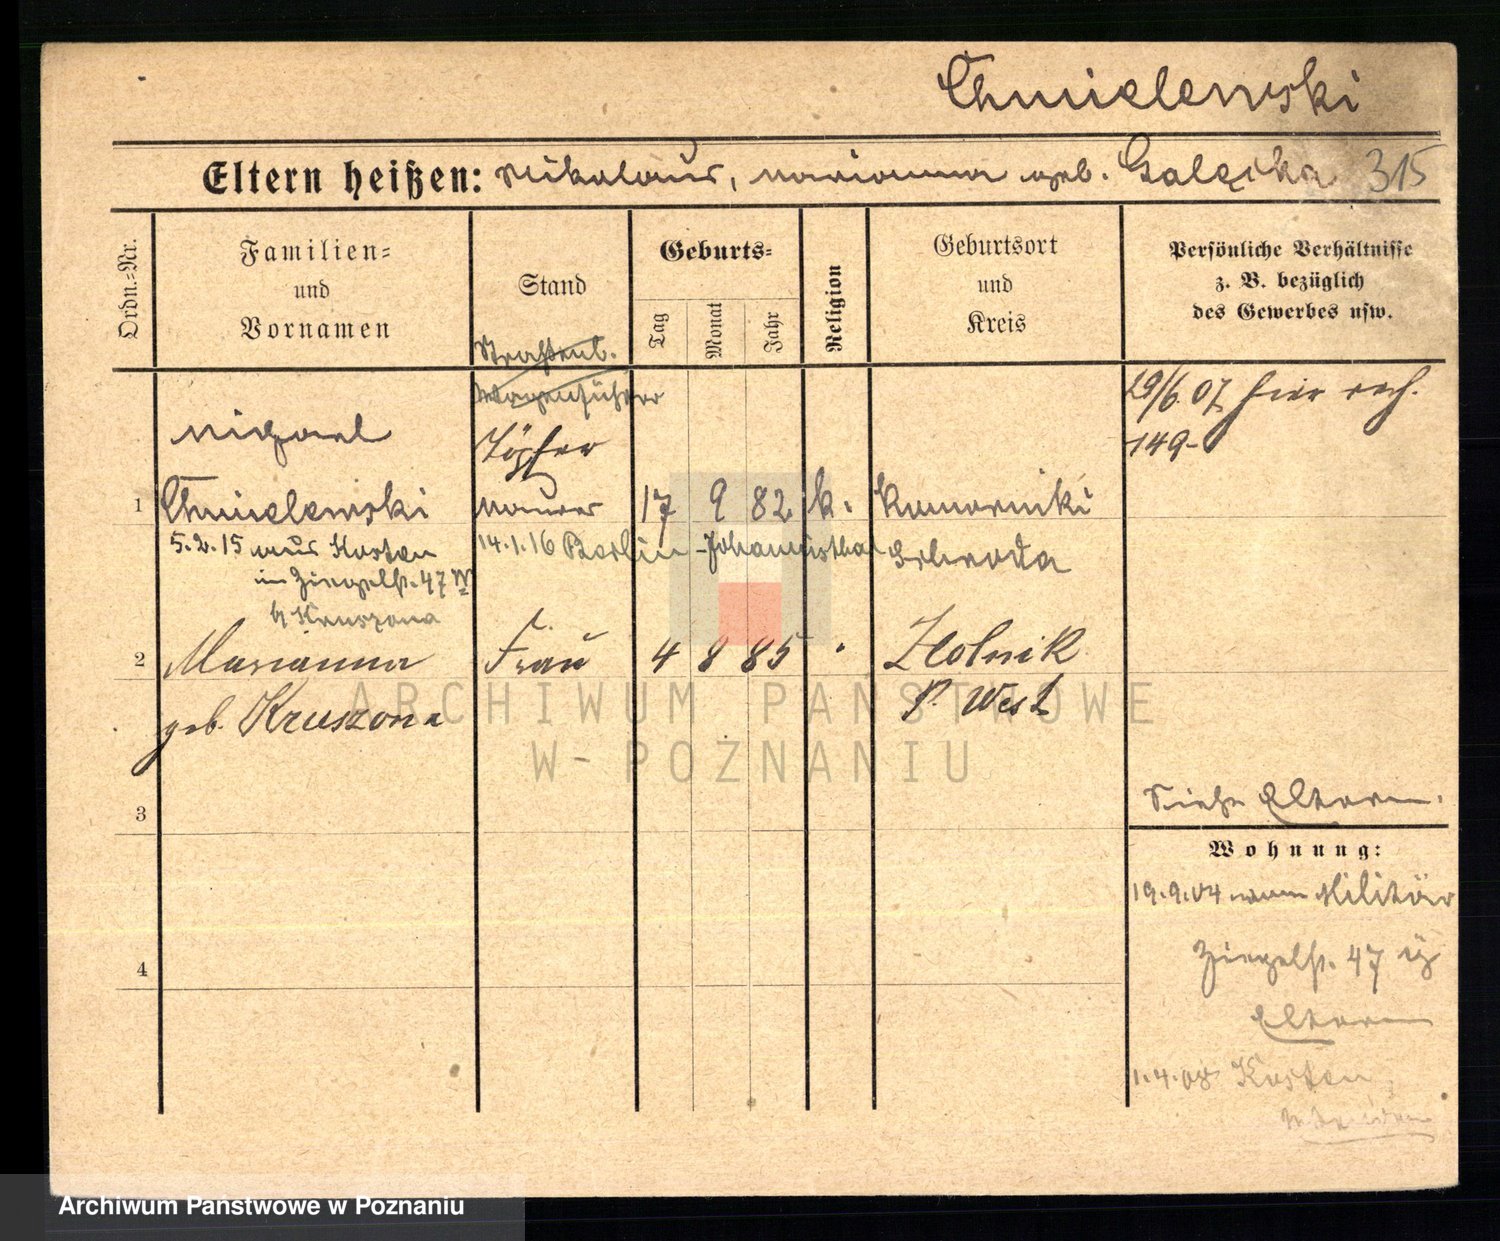 Chmielewski
Eltern heißen: Nikolaus, Marianna geb. Galęska 315
Ordn.=Nr.
Familien=
und
Vornamen
Stand
Geburts=
Tag
Monat
Jahr
Religion
Geburtsort
und
Kreis
Persönliche Verhältnisse
z. B. bezüglich
des Gewerbes usw.
Straßenb.
Wagenführer
29/6. 07 hier
149-
Michael
Töpfer
1 Chmielewski Maurer 17 9 82 k. Komorniki
5.2.15 aus Kosten 14.1.16 Berlin-Johannisthal Schroda
im Ziegelst. 47
b Kruszona
2 Marianna Frau 4 8 85 " Zlotnik
geb. Kruszona P. West
3
Siehe Eltern.
Wohnung:
19.9.04 zum Militär
4
Ziegelst. 47
Eltern
1.4.08 Kosten
ARCHIWUM PAŃSTWOWE
W-POZNANIU
Archiwum Państwowe w Poznaniu